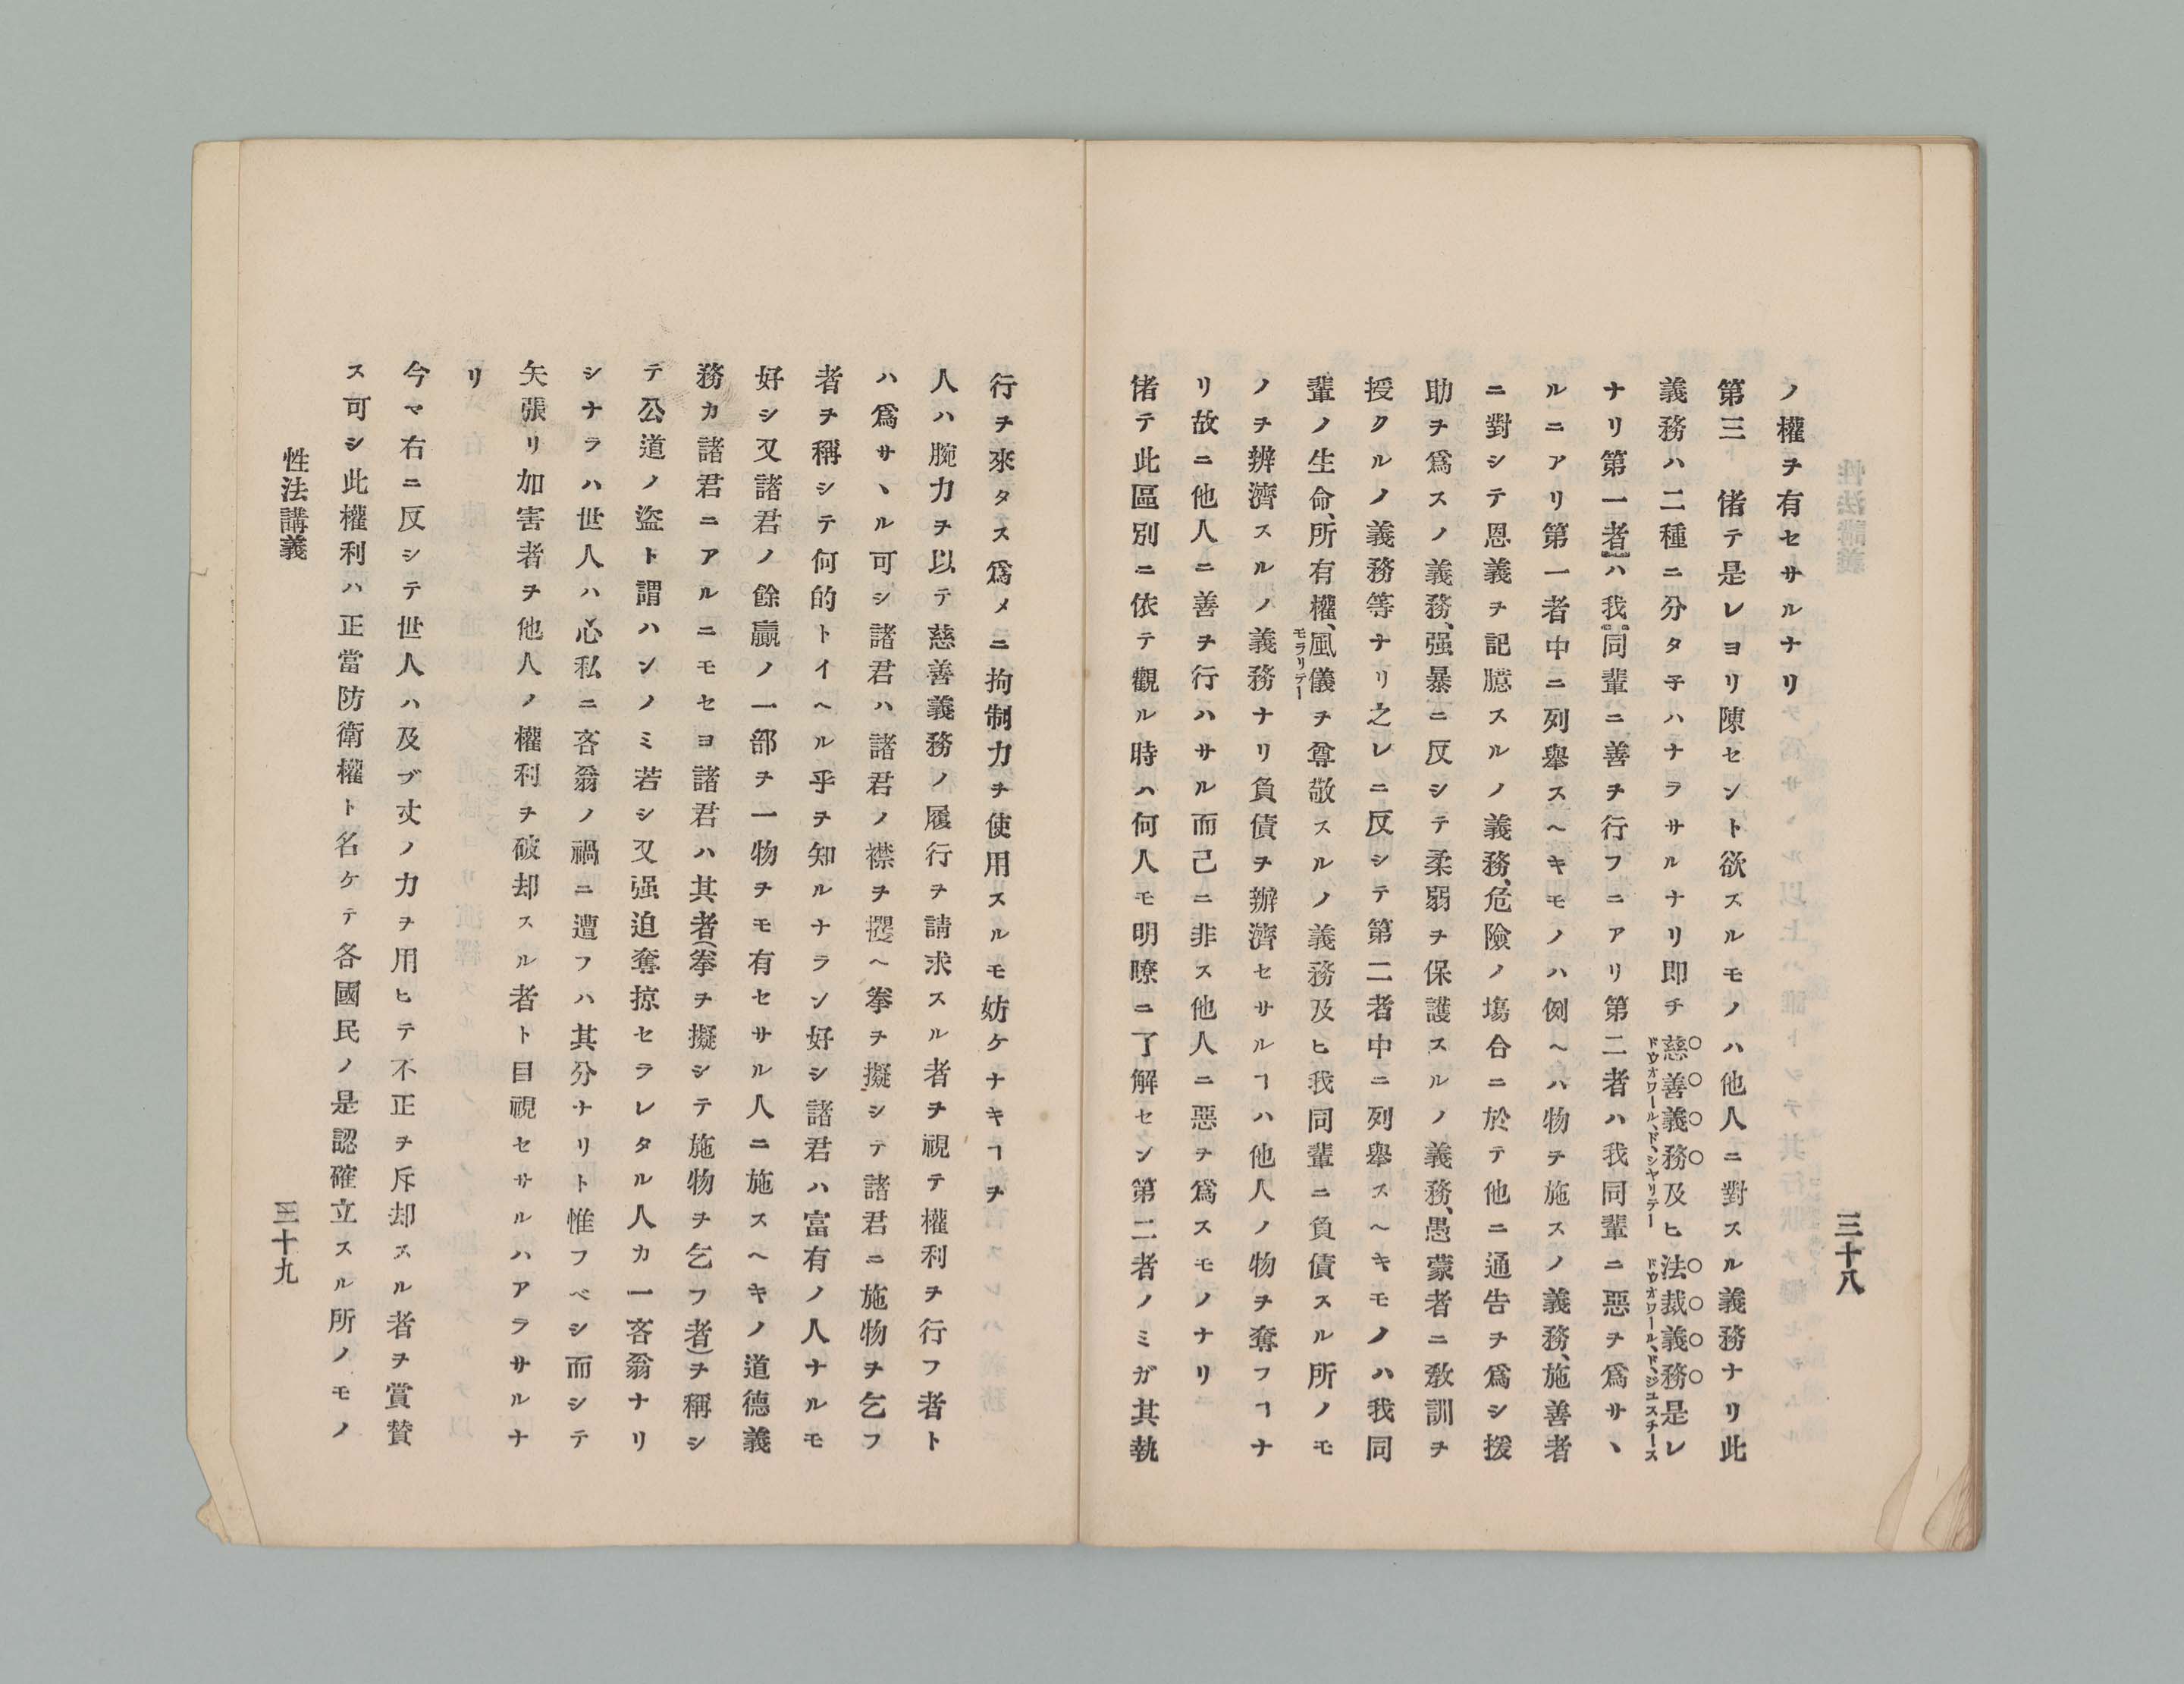 三十八
ノ權ヲ有セサルナリ
第三　偖テ是レヨリ陳セント欲スルモノハ他人ニ對スル義務ナリ此
義務ハ二種ニ分タ子ハナラサルナリ即チ慈善義務及ヒ法裁義務是レ
ドウオワール、ド、シヤリテー　ドウオワール、ド、ジユスチース
ナリ第一者ハ我同輩ニ善ヲ行フニアリ第二者ハ我同輩ニ惡ヲ爲サヽ
ルニアリ第一者中ニ列舉スヘキモノハ例ヘハ物ヲ施スノ義務、施善者
ニ對シテ恩義ヲ記臆スルノ義務、危險ノ塲合ニ於テ他ニ通告ヲ爲シ援
助ヲ爲スノ義務、强暴ニ反シテ柔弱ヲ保護スルノ義務、愚蒙者ニ敎訓ヲ
授クルノ義務等ナリ之レニ反シテ第二者中ニ列舉スヘキモノハ我同
輩ノ生命、所有權、風儀ヲ尊敬スルノ義務及ヒ我同輩ニ負債スル所ノモ
モラリテー
ノヲ辨濟スルノ義務ナリ負債ヲ辦濟セサルヿハ他人ノ物ヲ奪フヿナ
リ故ニ他人ニ善ヲ行ハサル而己ニ非ス他人ニ惡ヲ爲スモノナリ
偖テ此區別ニ依テ觀ル時ハ何人モ明瞭ニ了解セン第二者ノミガ其執
行ヲ來タス爲メニ拘制力ヲ使用スルモ妨ケナキヿヲ
人ハ腕力ヲ以テ慈善義務ノ履行ヲ請求スル者ヲ視テ權利ヲ行フ者ト
ハ爲サヽル可シ諸君ハ諸君ノ襟ヲ攫ヘ拳ヲ擬シテ諸君ニ施物ヲ乞フ
者ヲ稱シテ何的トイヘル乎ヲ知ルナラン好シ諸君ハ富有ノ人ナルモ
好シ又諸君ノ餘贏ノ一部ヲ一物ヲモ有セサル人ニ施スヘキノ道德義
務カ諸君ニアルニモセヨ諸君ハ其者(拳ヲ擬シテ施物ヲ乞フ者)ヲ稱シ
テ公道ノ盜ト謂ハンノミ若シ又强迫奪掠セラレタル人カ一吝翁ナリ
シナラハ世人ハ心私ニ吝翁ノ禍ニ遭フハ其分ナリト惟フベシ而シテ
矢張リ加害者ヲ他人ノ權利ヲ破却スル者ト目視セサルハアラサルナ
リ
今マ右ニ反シテ世人ハ及ブ丈ノ力ヲ用ヒテ不正ヲ斥却スル者ヲ賞賛
ス可シ此權利ハ正當防衛權ト名ケテ各國民ノ是認確立スル所ノモノ
性法講義
三十九